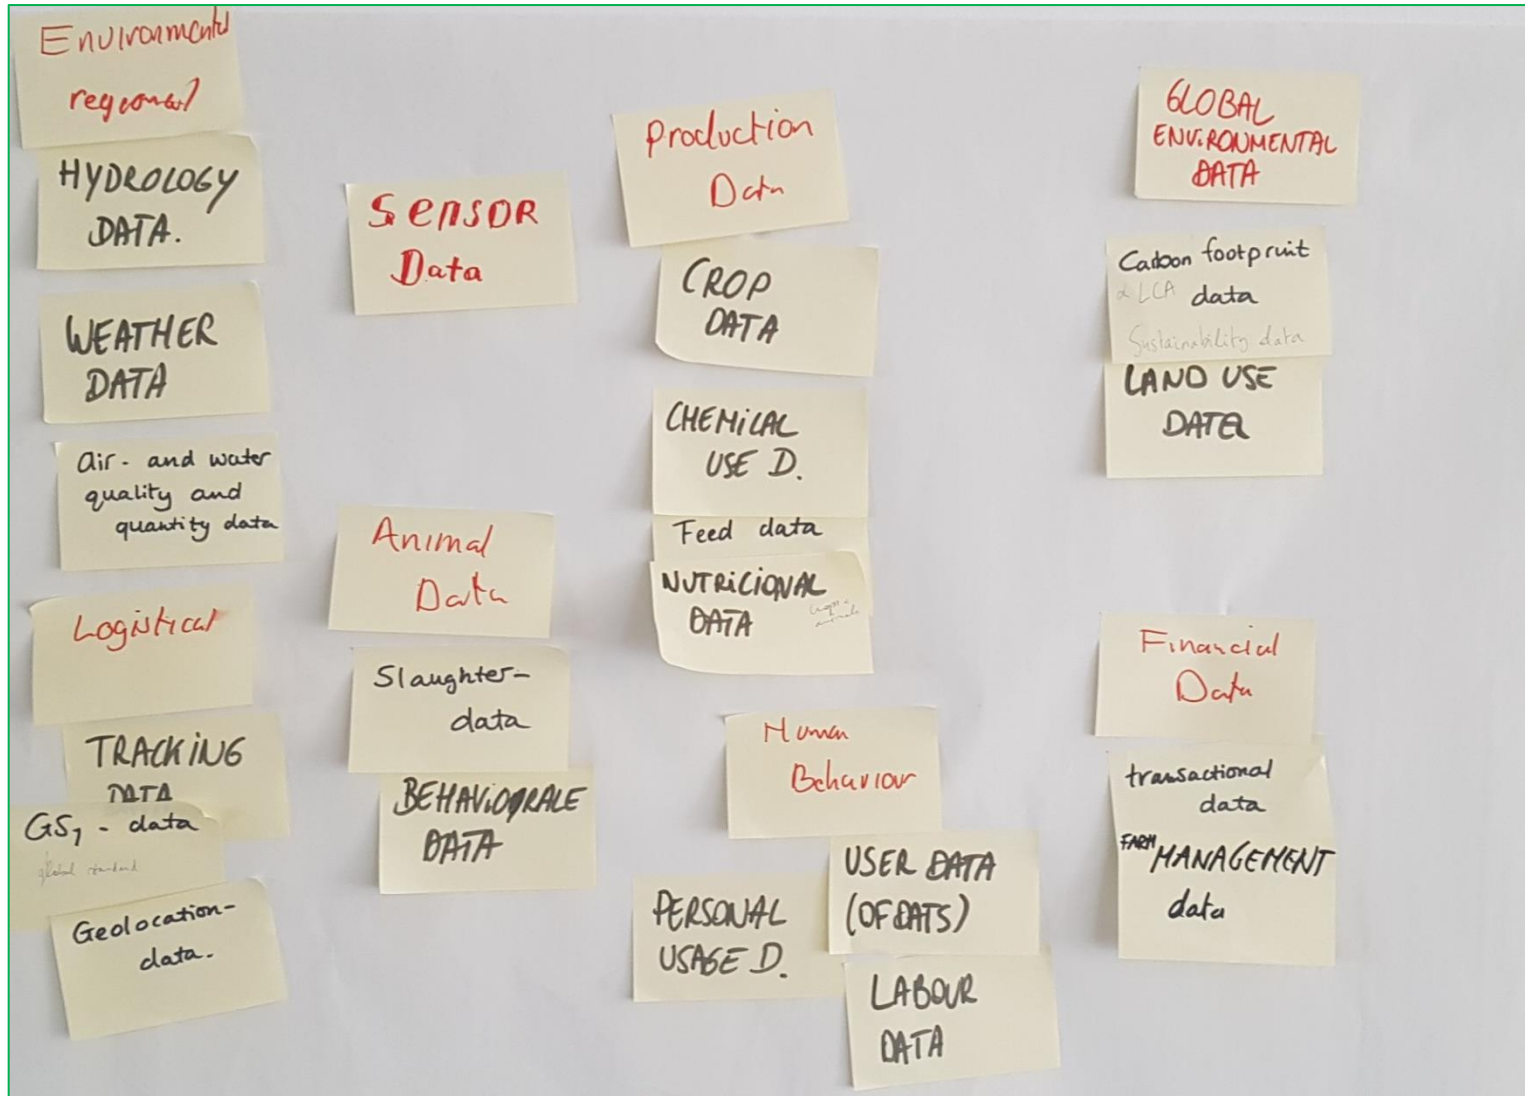 Environmental
regional
HYDROLOGY
DATA.
WEATHER
DATA
air- and water
quality and
quantity data
Logistical
TRACKING
DATA
GS1 - data
global standard
Geolocation-
data.
SENSOR
Data
Animal
Data
Slaughter-
data
BEHAVIORALE
DATA
Production
Data
CROP
DATA
CHEMICAL
USE D.
Feed data
NUTRICIONAL
DATA
Human
Behaviour
PERSONAL
USAGE D.
USER DATA
(OF DATS)
LABOUR
DATA
GLOBAL
ENVIRONMENTAL
DATA
Carbon footpruit
& LCA data
Sustainability data
LAND USE
DATA
Financial
Data
transactional
data
FARM MANAGEMENT
data